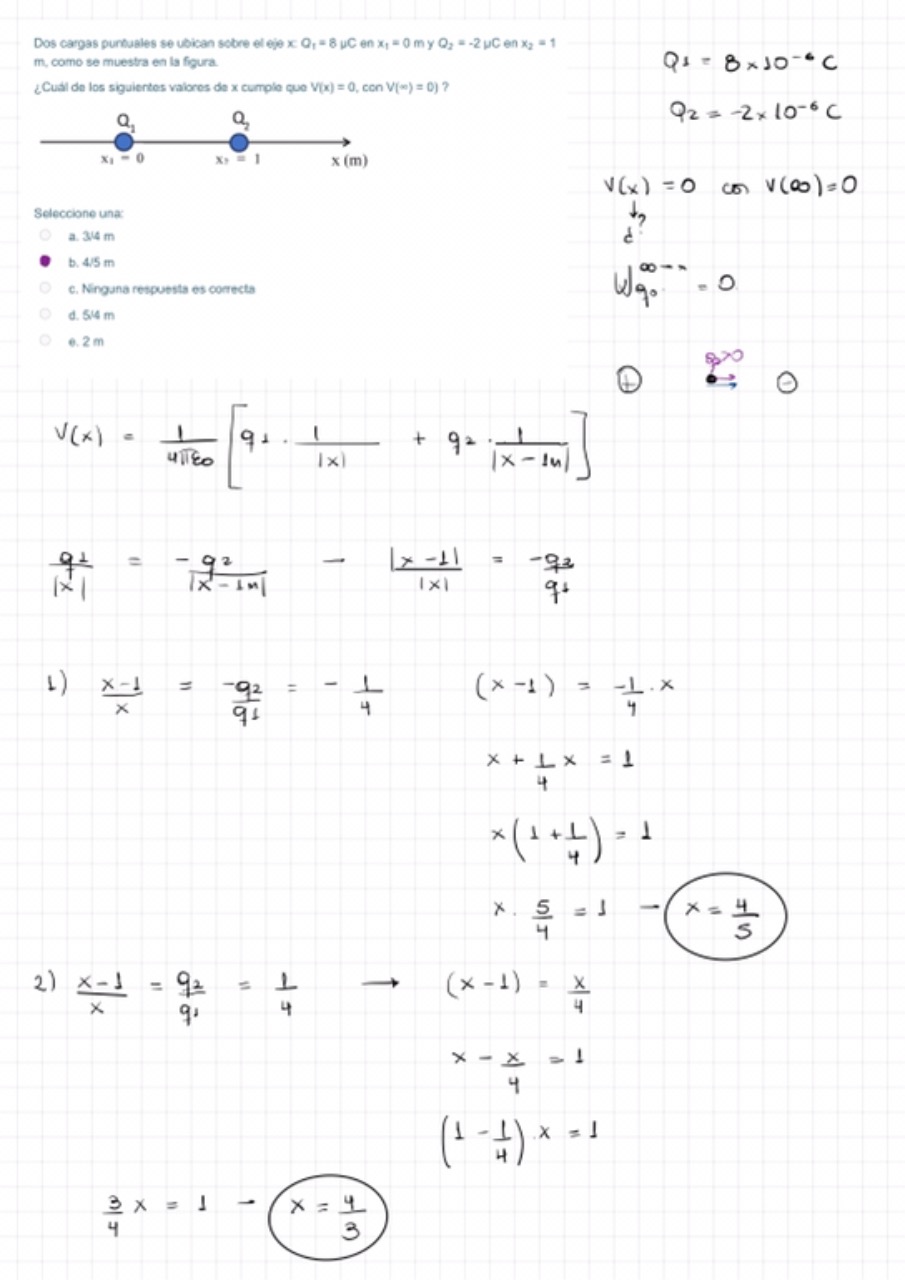 Dos cargas puntuales se ubican sobre el eje x: Q₁ = 8 µC en x₁ = 0 m y Q₂ = -2 µC en x₂ = 1
m, como se muestra en la figura.
¿Cuál de los siguientes valores de x cumple que V(x) = 0, con V(∞) = 0) ?
Q₁ Q₂
x₁ = 0 x₂ = 1 x (m)
Seleccione una:
a. 3/4 m
b. 4/5 m
c. Ninguna respuesta es correcta
d. 5/4 m
e. 2 m
Q1 = 8×10⁻⁶ C
Q2 = -2×10⁻⁶ C
V(x) = 0 con V(∞) = 0
↓?
d?
= 0
+ −
V(x) = 1/(4πε0) [ q1 · 1/|x| + q2 · 1/|x - 1m| ]
q1/|x| = -q2/|x - 1m| — |x - 1|/|x| = -q2/q1
1) (x-1)/x = -q2/q1 = - 1/4 (x - 1) = -1/4 · x
x + 1/4 x = 1
x (1 + 1/4) = 1
x · 5/4 = 1 → x = 4/5
2) (x-1)/x = q2/q1 = 1/4 → (x - 1) = x/4
x - x/4 = 1
(1 - 1/4) · x = 1
3/4 x = 1 → x = 4/3